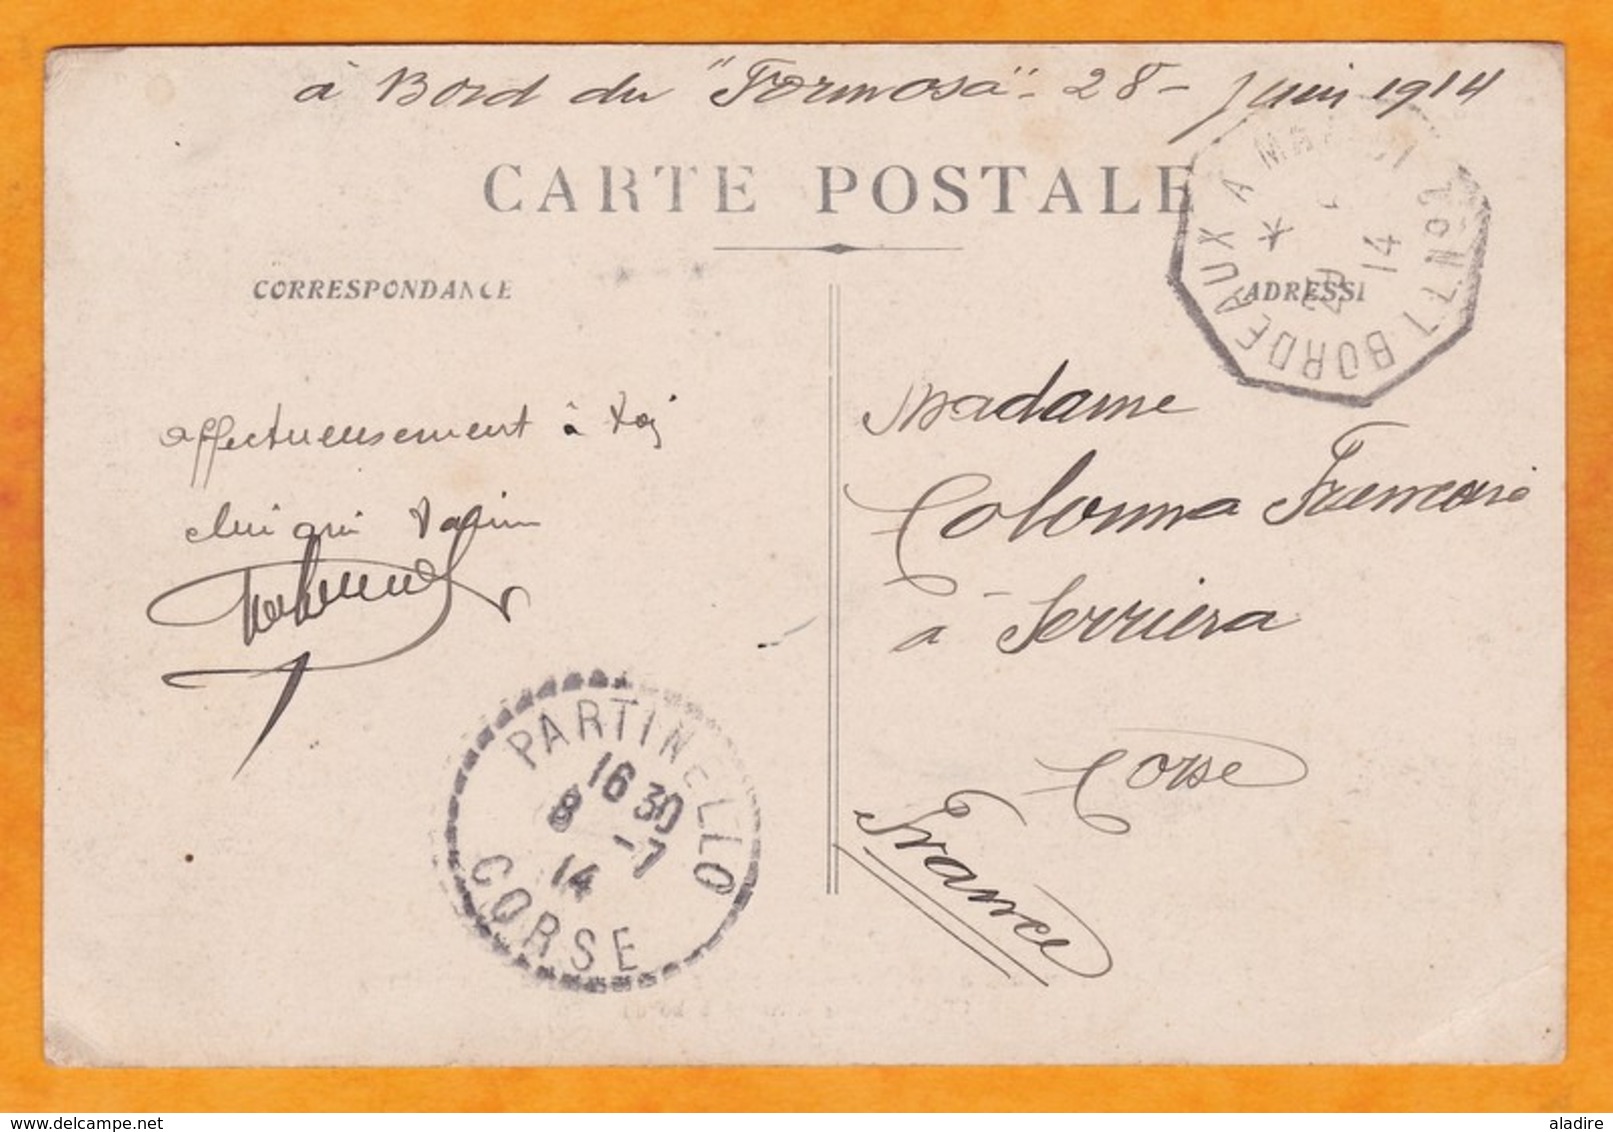 à Bord du "Formosa" - 28 - juin 1914
CARTE POSTALE
CORRESPONDANCE
ADRESSE
BORDEAUX A MATADI L.L. Nº2
29 6 14
affectueusement à toi
clui qui t'aime
Madame
Colonna Francoise
à Serriera
Corse
France
PARTINELLO
16 30
8 -7
14
CORSE
aladire